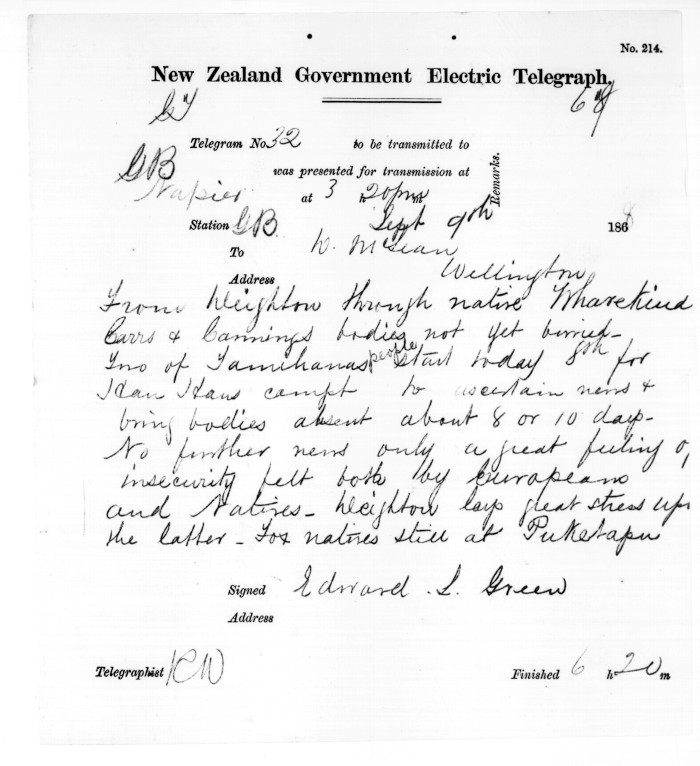 No. 214.
New Zealand Government Electric Telegraph.
Telegram No. 32 to be transmitted to
GB was presented for transmission at
Remarks.
Napier at 3 h 20 pm m
Station GB. Sept 9th 1868
To D. McLean
Address Wellington
From Deighton through native Wharekind
Carrs & Cannings bodies not yet burried -
Two of Tamihanas people start today 8th for
Hau Haus campt to ascertain news &
bring bodies absent about 8 or 10 days -
No further news only a great feeling of
insecurity felt both by Europeans
and Natives - Deighton lays great stress upn
the latter - Fox natives still at Puketapu
Signed Edward. S. Green
Address
Telegraphist
Finished 6 h 20 m